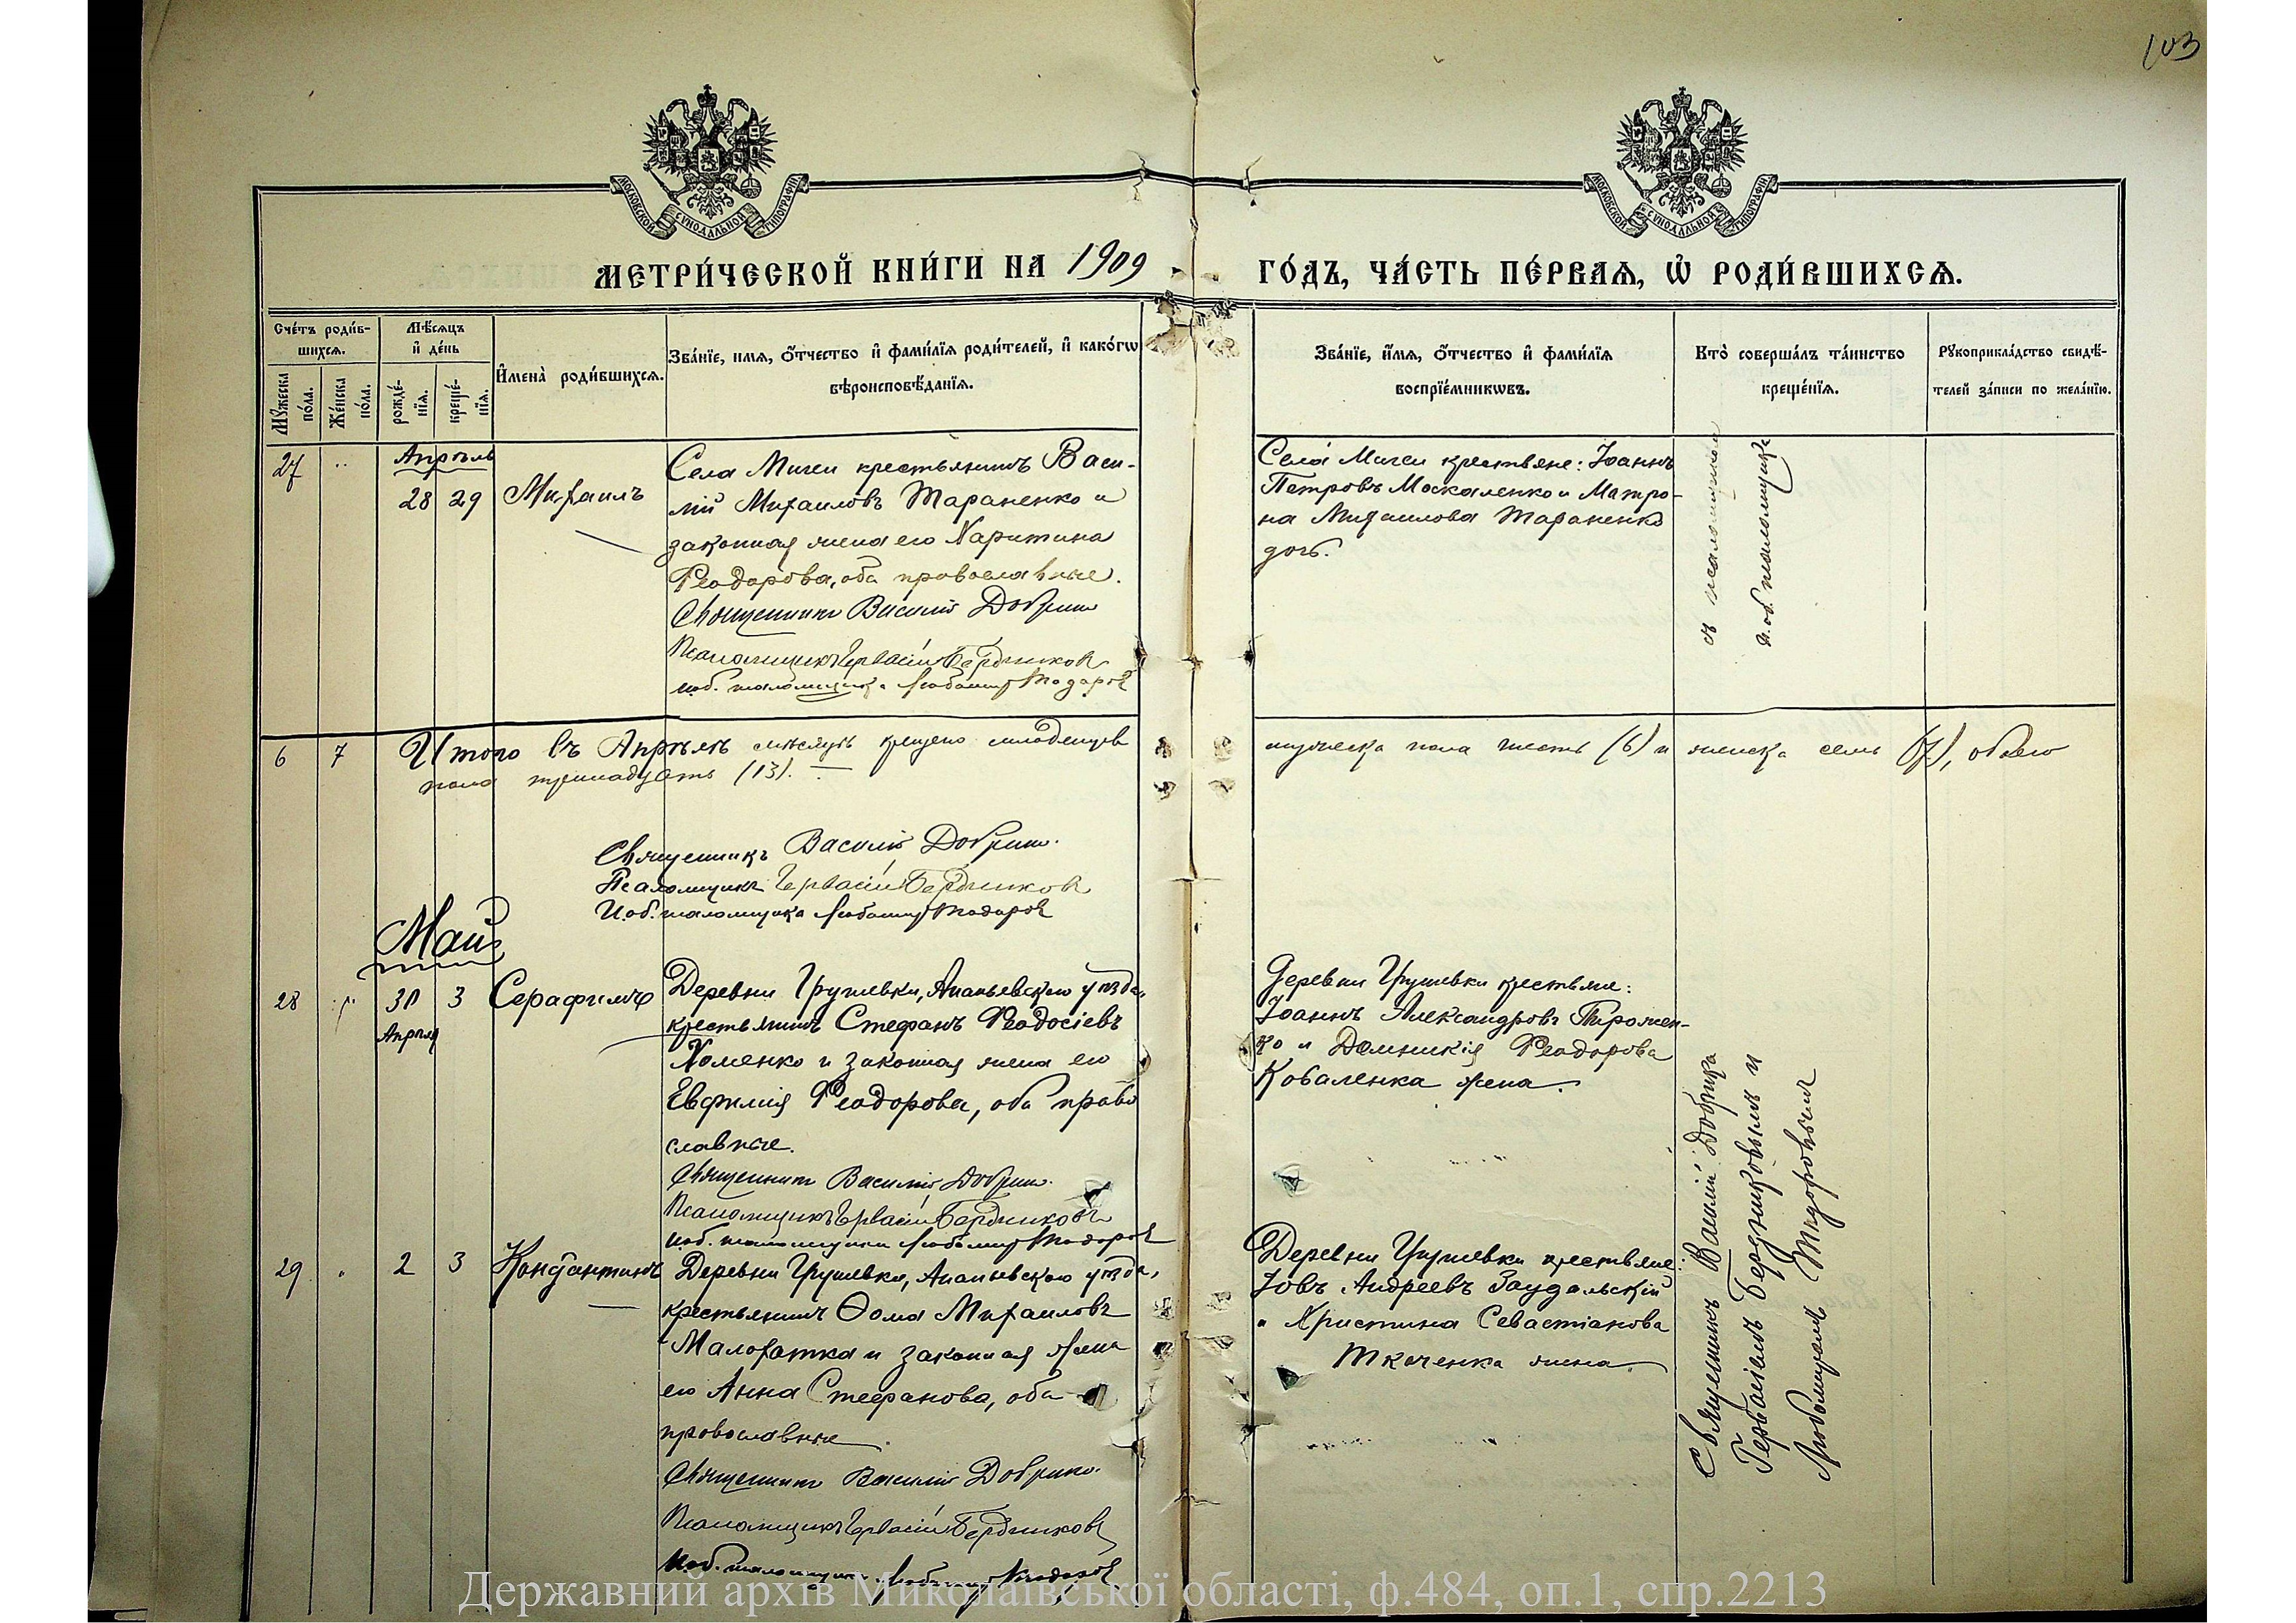 103
МОСКОВСКОЙ СѴНОДАЛЬНОЙ ТИПОГРАФІИ
МОСКОВСКОЙ СѴНОДАЛЬНОЙ ТИПОГРАФІИ
МЕТРИ́ЧЕСКОЙ КНИ́ГИ НА 1909 ГО́ДЪ, ЧА́СТЬ ПЕ́РВАѦ, Ѽ РОДИ́ВШИХСѦ.
Сче́тъ роди́в-
шихсѧ.
Мꙋ́жеска по́ла.
Же́нска по́ла.
Мѣ́сѧцъ и҆ де́нь
рожде́-
нїѧ.
креще́-
нїѧ.
И҆мена̀ роди́вшихсѧ.
Зва́нїе, имѧ, ѻ҆́тчество и҆ фами́лїѧ роди́телей, и҆ како́гѡ
вѣроисповѣ́данїѧ.
Зва́нїе, и҆́мѧ, ѻ҆́тчество и҆ фами́лїѧ
воспрїе́мникѡвъ.
Кто̀ соверша́лъ та́инство
креще́нїѧ.
Рꙋкоприкла́дство свидѣ́-
телей за́писи по жела́нїю.
27
Апрѣль
28 29
Михаилъ
Села Мигеи крестьянинъ Васи-
лій Михаиловъ Тараненко и
законная жена его Харитина
Феодорова, оба православные.
Священникъ Василій Добрик
Псаломщикъ Гервасій Бердников
И.об. псаломщика Любомиръ Тодоров
Села Мигеи крестьяне: Іоаннъ
Петровъ Москаленко и Матро-
на Михаилова Тараненко
дочь.
съ псаломщикомъ
и. об. псаломщика
6 7 Итого въ Апрѣлѣ мѣсяцѣ крещено младенцев мужеска пола шесть (6) и женска семь (7), обоего
пола тринадцать (13).
Священникъ Василій Добрик.
Псаломщикъ Гервасій Бердников
И.об. псаломщика Любомиръ Тодоров
Май
28 30 3 Серафимъ
Апрѣля
Деревни Грушевки, Ананьевскаго уѣзда
крестьянинъ Стефанъ Феодосіевъ
Хоменко и законная жена его
Евфимія Феодорова, оба право
славные.
Священникъ Василій Добрик.
Псаломщикъ Гервасій Бердников
И.об. псаломщика Любомиръ Тодоров
Деревни Грушевки крестьяне:
Іоаннъ Александровъ Пирожен-
ко и Домникія Феодорова
Коваленка жена.
29 2 3 Константинъ
Деревни Грушевки, Ананьевскаго уѣзда,
крестьянинъ Ѳома Михаиловъ
Малохатка и законная жена
его Анна Стефанова, оба
православные.
Священникъ Василій Добрик.
Псаломщикъ Гервасій Бердников
И.об. псаломщика Любомиръ Тодоров
Деревни Грушевки крестьяне:
Іовъ Андреевъ Заудальскій
и Христина Севастіанова
Ткаченка жена.
Священникъ Василій Добрика
Гервасіемъ Бердниковымъ и
Любомиромъ Тодоровымъ
Державний архів Миколаївської області, ф.484, оп.1, спр.2213